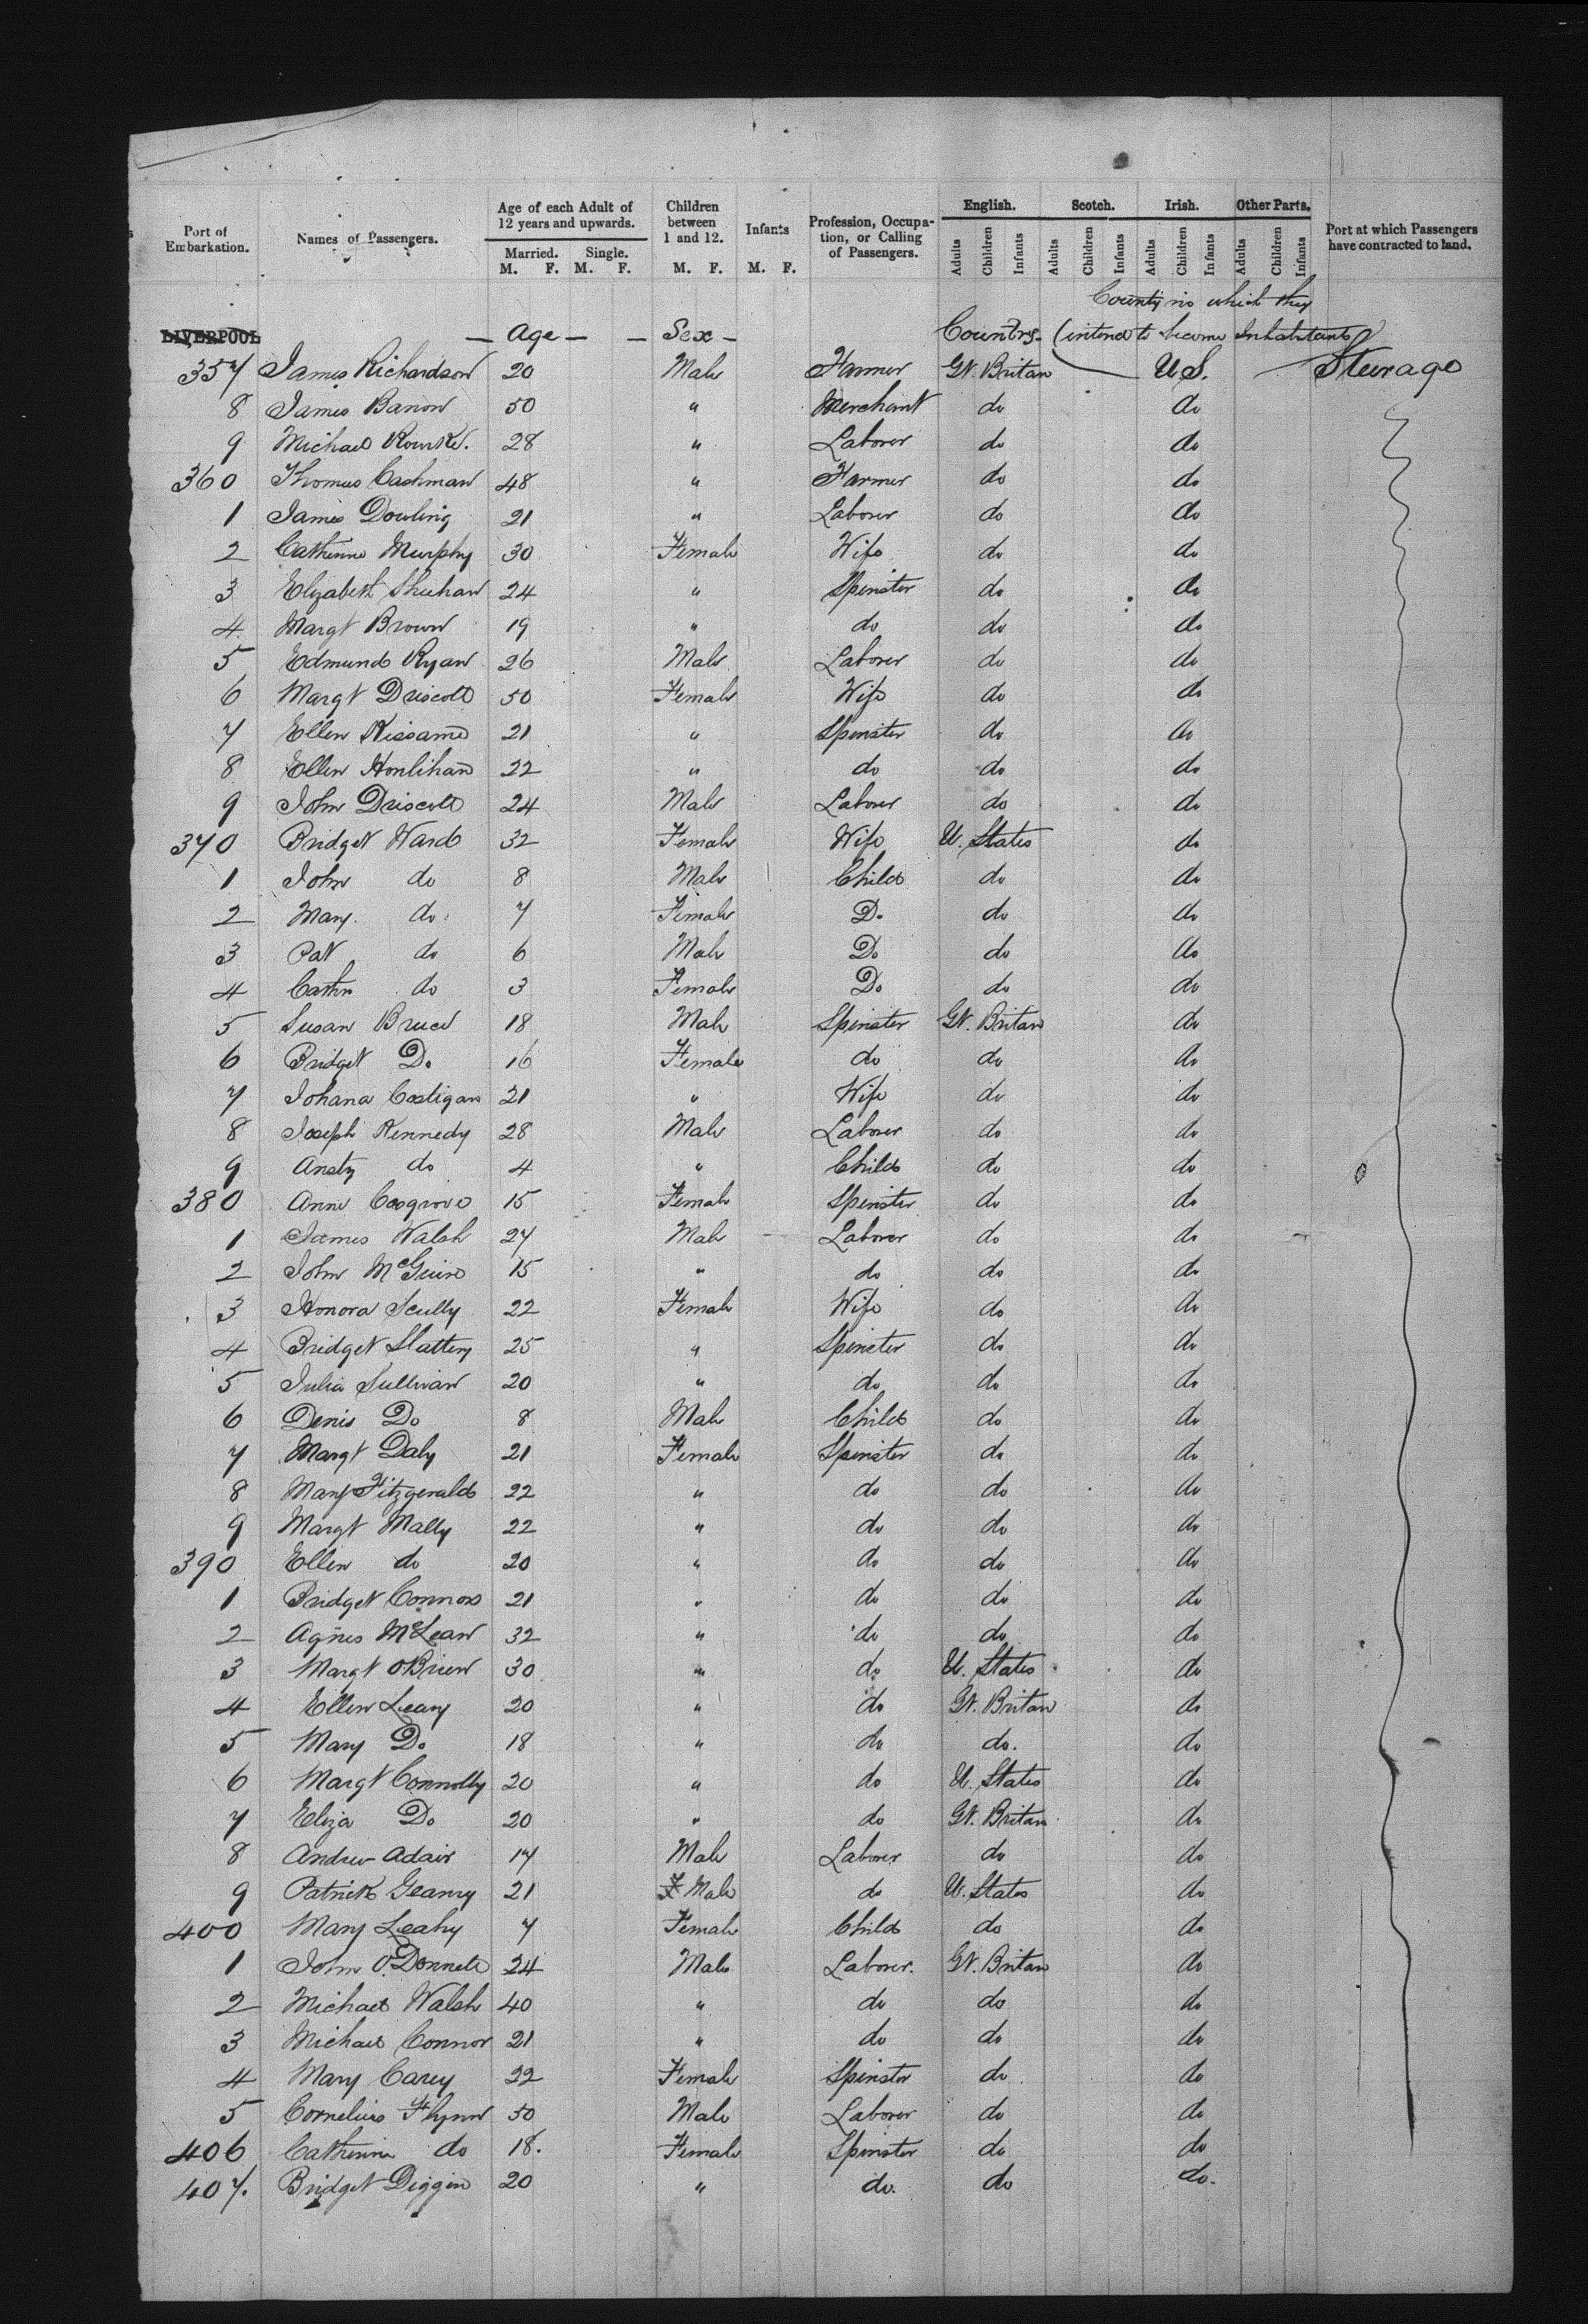 s
Port of Embarkation. Names of Passengers. Age of each Adult of 12 years and upwards. Married. M. F. Single. M. F. Children between 1 and 12. M. F. Infants M. F. Profession, Occupation, or Calling of Passengers. English. Adults Children Infants Scotch. Adults Children Infants Irish. Adults Children Infants Other Parts. Adults Children Infants Port at which Passengers have contracted to land.
County in which they
LIVERPOOL — Age — — Sex — Country — (intend to become Inhabitants)
357 James Richardson 20 Male Farmer Gt. Britan U.S. Steerage
8 James Banon 50 " Merchant do do
9 Michael Rourke. 28 " Laborer do do
360 Thomas Cashman 48 " Farmer do do
1 James Dowling 21 " Laborer do do
2 Catherine Murphy 30 Female Wife do do
3 Elizabeth Sheehan 24 " Spinster do do
4 Margt Brown 19 " do do do
5 Edmund Ryan 26 Male Laborer do do
6 Margt Driscoll 50 Female Wife do do
7 Ellen Kissane 21 " Spinster do do
8 Ellen Honlihan 22 " do do do
9 John Driscoll 24 Male Laborer do do
370 Bridget Ward 32 Female Wife U. States do
1 John do 8 Male Child do do
2 Mary do 7 Female Do do do
3 Pat do 6 Male Do do do
4 Cathn do 3 Female Do do do
5 Susan Bruce 18 Male Spinster Gt. Britan do
6 Bridget Do 16 Female do do do
7 Johana Costigan 21 " Wife do do
8 Joseph Kennedy 28 Male Laborer do do
9 Ansty do 4 " Child do do
380 Anne Cosgrove 15 Female Spinster do do
1 James Walsh 27 Male Laborer do do
2 John McGuire 15 " do do do
3 Honora Scully 22 Female Wife do do
4 Bridget Slattery 25 " Spinster do do
5 Julia Sullivan 20 " do do do
6 Denis Do 8 Male Child do do
7 Margt Daly 21 Female Spinster do do
8 Mary Fitzgerald 22 " do do do
9 Margt Mally 22 " do do do
390 Ellen do 20 " do do do
1 Bridget Connors 21 " do do do
2 Agnes McLean 32 " do do do
3 Margt O'Brien 30 " do U. States do
4 Ellen Leary 20 " do Gt. Britan do
5 Mary Do 18 " do do. do
6 Margt Connolly 20 " do U. States do
7 Eliza Do 20 " do Gt. Britan do
8 Andrew Adair 17 Male Laborer do do
9 Patrick Geanry 21 Male do U. States do
400 Mary Leahy 7 Female Child do do
1 John O'Donnell 24 Male Laborer. Gt. Britan do
2 Michael Walsh 40 " do do do
3 Michael Connor 21 " do do do
4 Mary Carey 22 Female Spinster do do
5 Cornelius Flynn 50 Male Laborer do do
406 Catherine do 18. Female Spinster do do
407. Bridget Diggin 20 " do. do do.